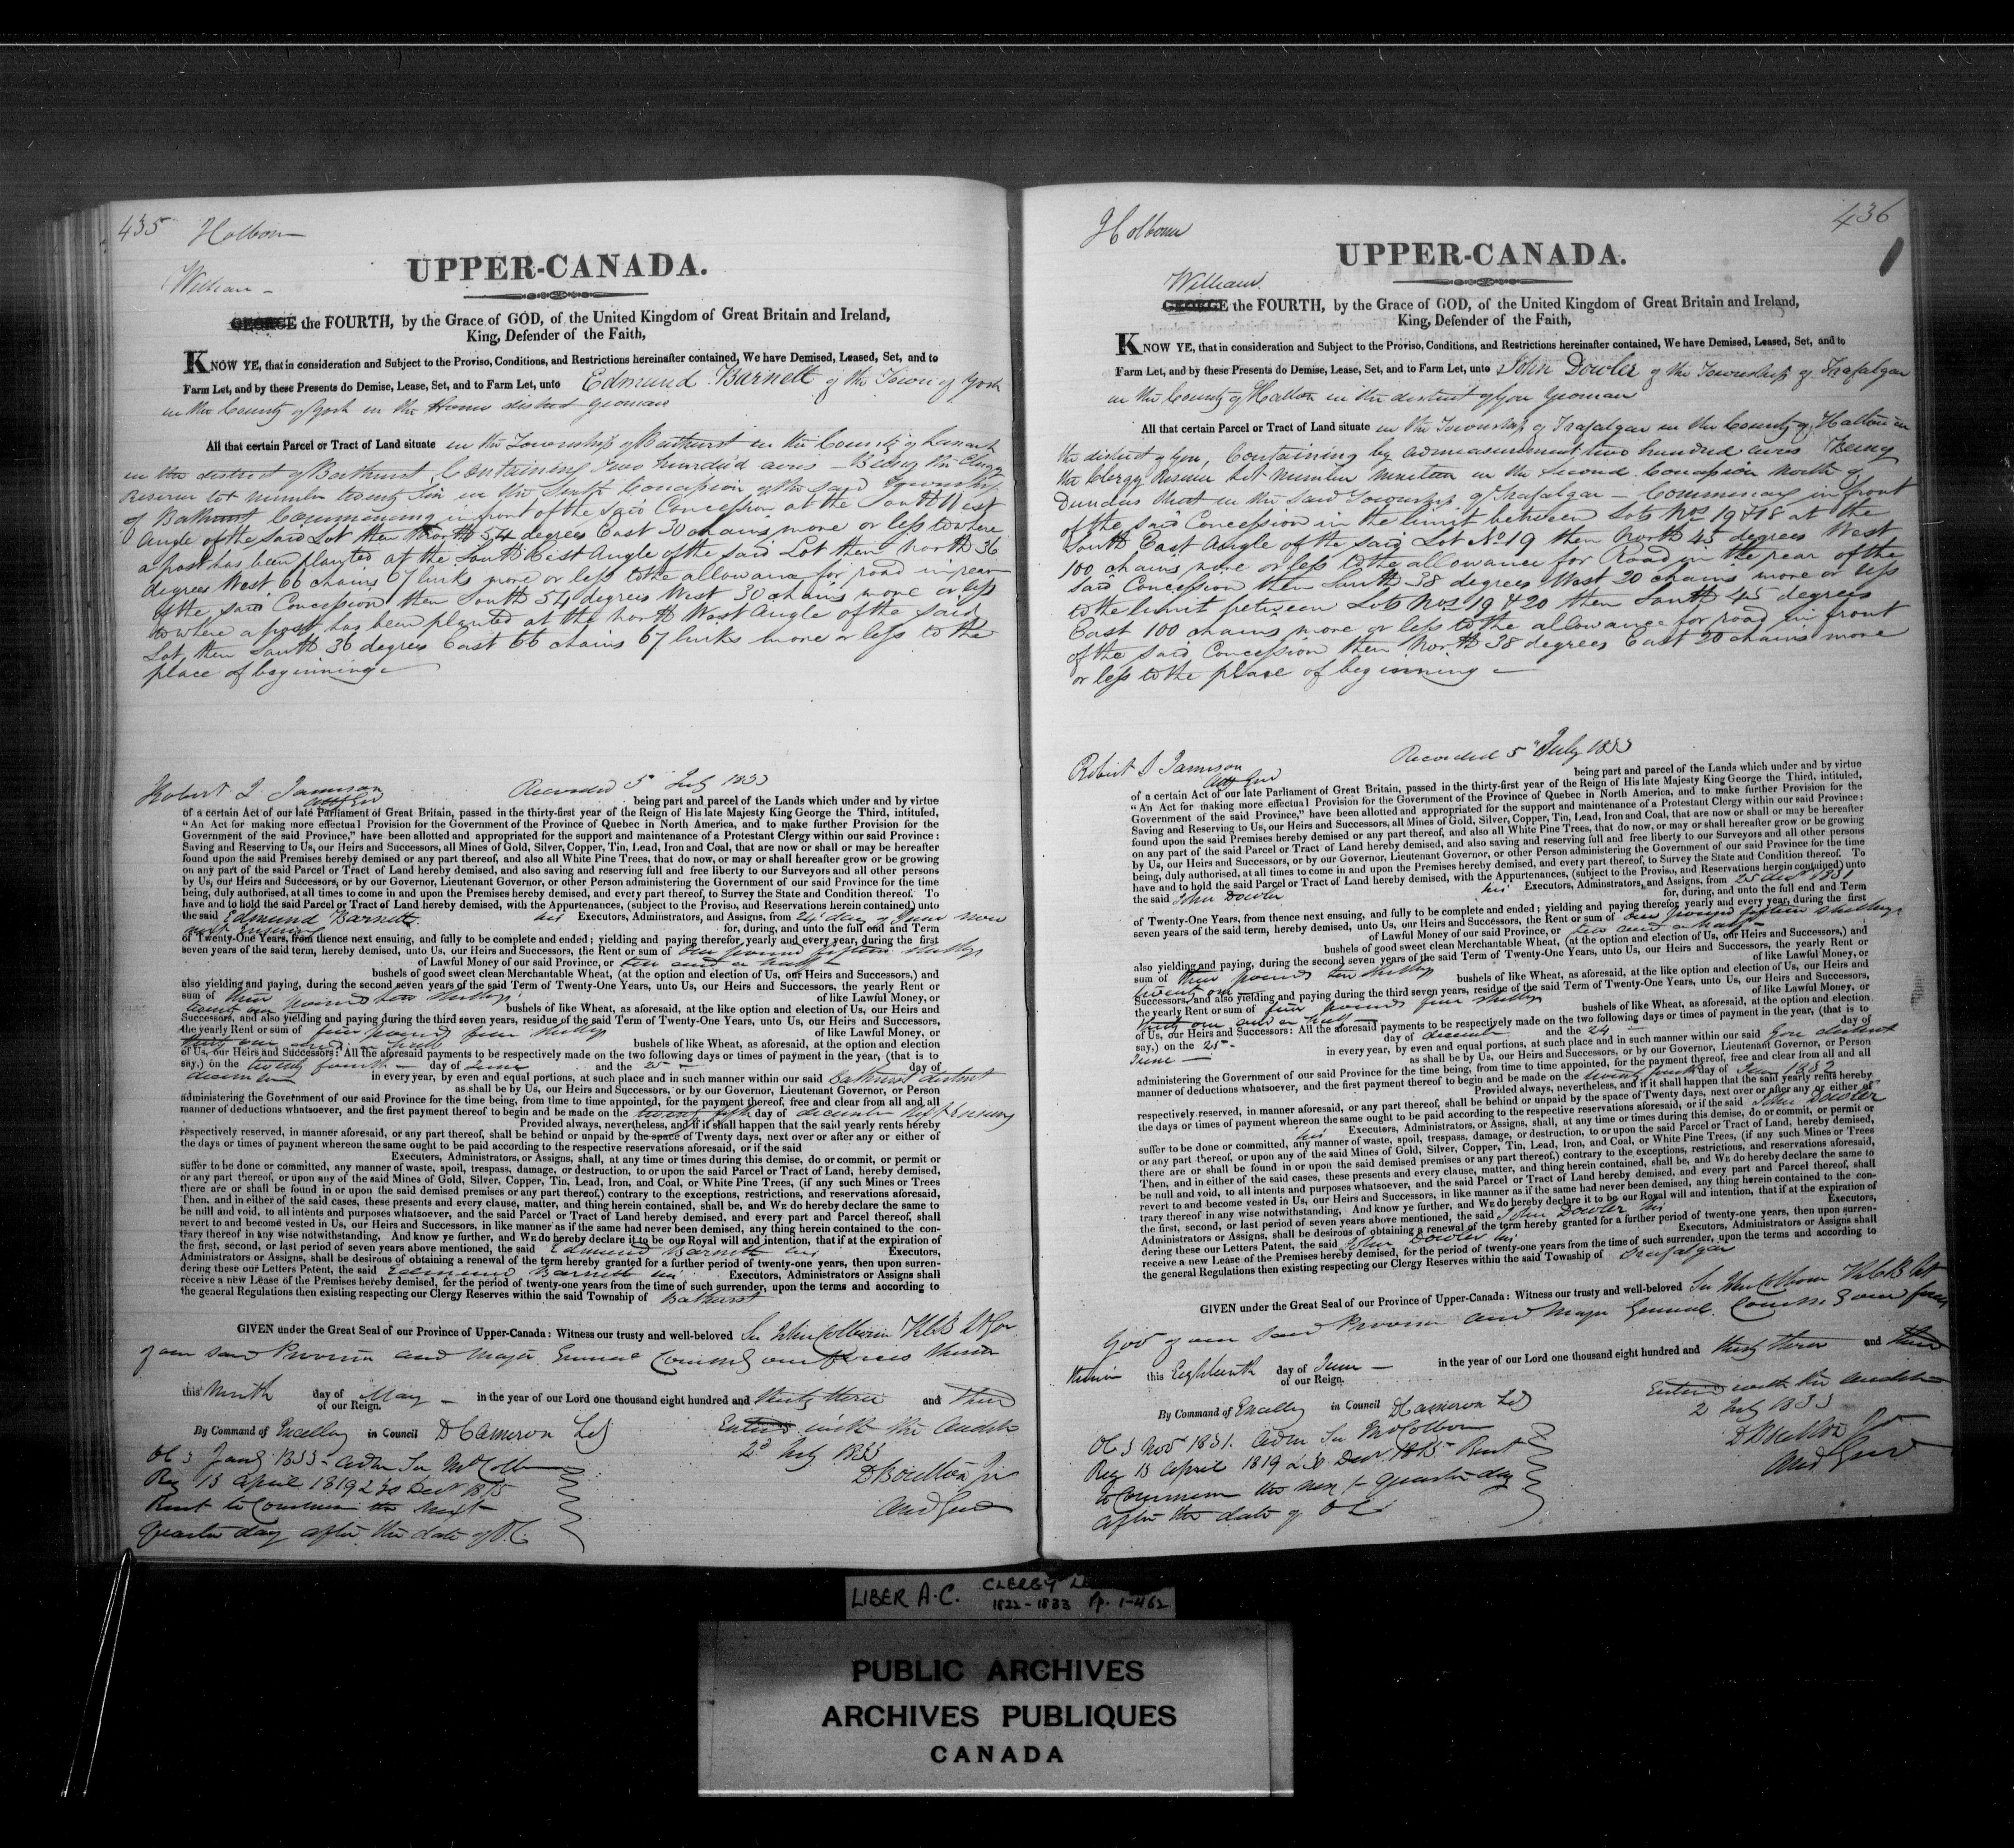 435 Holborn
UPPER-CANADA.
William
GEORGE the FOURTH, by the Grace of GOD, of the United Kingdom of Great Britain and Ireland,
King, Defender of the Faith,
KNOW YE, that in consideration and Subject to the Proviso, Conditions, and Restrictions hereinafter contained, We have Demised, Leased, Set, and to
Farm Let, and by these Presents do Demise, Lease, Set, and to Farm Let, unto Edmund Barnett of the Town of York
in the County of York in the Home district Yeoman
All that certain Parcel or Tract of Land situate in the Township of Bathurst in the County of Lanark
in the district of Bathurst, Containing Two hundred acres - Being the Clergy
Reserve Lot number twenty Six in the Concession of the said Township
of Bathurst Commencing in front of the said Concession at the South West
Angle of the said Lot then North 54 degrees East 30 chains more or less to where
a post has been planted at the South East Angle of the said Lot then North 36
degrees West 66 chains 67 links more or less to the allowance for road in rear
of the said Concession then South 54 degrees West 30 chains more or less
to where a post has been planted at the North West Angle of the said
Lot then South 36 degrees East 66 chains 67 links more or less to the
place of beginning
Robert Jamison Recorded 5 July 1833
Att Gen
being part and parcel of the Lands which under and by virtue
of a certain Act of our late Parliament of Great Britain, passed in the thirty-first year of the Reign of His late Majesty King George the Third, intituled,
"An Act for making more effectual Provision for the Government of the Province of Quebec in North America, and to make further Provision for the
Government of the said Province," have been allotted and appropriated for the support and maintenance of a Protestant Clergy within our said Province:
Saving and Reserving to Us, our Heirs and Successors, all Mines of Gold, Silver, Copper, Tin, Lead, Iron and Coal, that are now or shall or may be hereafter
found upon the said Premises hereby demised or any part thereof, and also all White Pine Trees, that do now, or may or shall hereafter grow or be growing
on any part of the said Parcel or Tract of Land hereby demised, and also saving and reserving full and free liberty to our Surveyors and all other persons
by Us, our Heirs and Successors, or by our Governor, Lieutenant Governor, or other Person administering the Government of our said Province for the time
being, duly authorised, at all times to come in and upon the Premises hereby demised, and every part thereof, to Survey the State and Condition thereof. To
have and to hold the said Parcel or Tract of Land hereby demised, with the Appurtenances, (subject to the Proviso, and Reservations herein contained) unto
the said Edmund Barnett his Executors, Adminstrators, and Assigns, from 24th day of June now
next Ensuing for, during, and unto the full end and Term
of Twenty-One Years, from thence next ensuing, and fully to be complete and ended; yielding and paying therefor yearly and every year, during the first
seven years of the said term, hereby demised, unto Us, our Heirs and Successors, the Rent or sum of One pound fifteen shillings
of Lawful Money of our said Province, or ten and a half
bushels of good sweet clean Merchantable Wheat, (at the option and election of Us, our Heirs and Successors,) and
also yielding and paying, during the second seven years of the said Term of Twenty-One Years, unto Us, our Heirs and Successors, the yearly Rent or
sum of three pounds ten shillings of like Lawful Money, or
twenty one bushels of like Wheat, as aforesaid, at the like option and election of Us, our Heirs and
Successors, and also yielding and paying during the third seven years, residue of the said Term of Twenty-One Years, unto Us, our Heirs and Successors,
the yearly Rent or sum of five pounds five shillings of like Lawful Money, or
thirty one and a half bushels of like Wheat, as aforesaid, at the option and election
of Us, our Heirs and Successors: All the aforesaid payments to be respectively made on the two following days or times of payment in the year, (that is to
say,) on the twenty fourth day of June and the 25 day of
december in every year, by even and equal portions, at such place and in such manner within our said Bathurst district
as shall be by Us, our Heirs and Successors, or by our Governor, Lieutenant Governor, or Person
administering the Government of our said Province for the time being, from time to time appointed, for the payment thereof, free and clear from all and all
manner of deductions whatsoever, and the first payment thereof to begin and be made on the twenty fifth day of december next Ensuing
Provided always, nevertheless, and if it shall happen that the said yearly rents hereby
respectively reserved, in manner aforesaid, or any part thereof, shall be behind or unpaid by the space of Twenty days, next over or after any or either of
the days or times of payment whereon the same ought to be paid according to the respective reservations aforesaid, or if the said
Executors, Administrators, or Assigns, shall, at any time or times during this demise, do or commit, or permit or
suffer to be done or committed, any manner of waste, spoil, trespass, damage, or destruction, to or upon the said Parcel or Tract of Land, hereby demised,
or any part thereof, or upon any of the said Mines of Gold, Silver, Copper, Tin, Lead, Iron, and Coal, or White Pine Trees, (if any such Mines or Trees
there are or shall be found in or upon the said demised premises or any part thereof,) contrary to the exceptions, restrictions, and reservations aforesaid,
Then, and in either of the said cases, these presents and every clause, matter, and thing herein contained, shall be, and WE do hereby declare the same to
be null and void, to all intents and purposes whatsoever, and the said Parcel or Tract of Land hereby demised, and every part and Parcel thereof, shall
revert to and become vested in Us, our Heirs and Successors, in like manner as if the same had never been demised, any thing herein contained to the con-
trary thereof in any wise notwithstanding, And know ye further, and WE do hereby declare it to be our Royal will and intention, that if at the expiration of
the first, second, or last period of seven years above mentioned, the said Edmund Barnett his Executors,
Administrators or Assigns, shall be desirous of obtaining a renewal of the term hereby granted for a further period of twenty-one years, then upon surren-
dering these our Letters Patent, the said Edmund Barnett his Executors, Administrators or Assigns shall
receive a new Lease of the Premises hereby demised, for the period of twenty-one years from the time of such surrender, upon the terms and according to
the general Regulations then existing respecting our Clergy Reserves within the said Township of Bathurst
GIVEN under the Great Seal of our Province of Upper-Canada: Witness our trusty and well-beloved Sir John Colborne KCB Lt Gov
of our said Province and Major General Comdg our forces therein
this Ninth day of May in the year of our Lord one thousand eight hundred and thirty three and third
of our Reign.
By Command of Excellency in Council D Cameron Sec
Entered with the Auditor
2d July 1833
D Boulton Jr
Aud Gen
OC 3 Jany 1833
Reg 13 April 1819
Rent to Commence the next
quarter day after the date of O.C.
Holborn 436
UPPER-CANADA.
William
GEORGE the FOURTH, by the Grace of GOD, of the United Kingdom of Great Britain and Ireland,
King, Defender of the Faith,
KNOW YE, that in consideration and Subject to the Proviso, Conditions, and Restrictions hereinafter contained, We have Demised, Leased, Set, and to
Farm Let, and by these Presents do Demise, Lease, Set, and to Farm Let, unto John Dowler of the Township of Trafalgar
in the County of Halton in the district of Gore Yeoman
All that certain Parcel or Tract of Land situate in the Township of Trafalgar in the County of Halton in
the district of Gore, Containing by admeasurement two hundred acres Being
the Clergy Reserve Lot Number Nineteen in the Second Concession North of
Dundas Street in the said Township of Trafalgar - Commencing in front
of the said Concession in the limit between Lots Nos 19 & 18 at the
South East Angle of the said Lot No 19 then North 45 degrees West
100 chains more or less to the allowance for Road in the rear of the
said Concession then South 38 degrees West 20 chains more or less
to the limit between Lots Nos 19 & 20 then South 45 degrees
East 100 chains more or less to the allowance for road in front
of the said Concession then North 38 degrees East 20 chains more
or less to the place of beginning
Robert Jamison Recorded 5 July 1833
Att Gen
being part and parcel of the Lands which under and by virtue
of a certain Act of our late Parliament of Great Britain, passed in the thirty-first year of the Reign of His late Majesty King George the Third, intituled,
"An Act for making more effectual Provision for the Government of the Province of Quebec in North America, and to make further Provision for the
Government of the said Province," have been allotted and appropriated for the support and maintenance of a Protestant Clergy within our said Province:
Saving and Reserving to Us, our Heirs and Successors, all Mines of Gold, Silver, Copper, Tin, Lead, Iron and Coal, that are now or shall or may be hereafter
found upon the said Premises hereby demised or any part thereof, and also all White Pine Trees, that do now, or may or shall hereafter grow or be growing
on any part of the said Parcel or Tract of Land hereby demised, and also saving and reserving full and free liberty to our Surveyors and all other persons
by Us, our Heirs and Successors, or by our Governor, Lieutenant Governor, or other Person administering the Government of our said Province for the time
being, duly authorised, at all times to come in and upon the Premises hereby demised, and every part thereof, to Survey the State and Condition thereof. To
have and to hold the said Parcel or Tract of Land hereby demised, with the Appurtenances, (subject to the Proviso, and Reservations herein contained) unto
the said John Dowler his Executors, Adminstrators, and Assigns, from 25 1831
for, during, and unto the full end and Term
of Twenty-One Years, from thence next ensuing, and fully to be complete and ended; yielding and paying therefor yearly and every year, during the first
seven years of the said term, hereby demised, unto Us, our Heirs and Successors, the Rent or sum of One pound fifteen shillings
of Lawful Money of our said Province, or ten and a half
bushels of good sweet clean Merchantable Wheat, (at the option and election of Us, our Heirs and Successors,) and
also yielding and paying, during the second seven years of the said Term of Twenty-One Years, unto Us, our Heirs and Successors, the yearly Rent or
sum of three pounds ten shillings of like Lawful Money, or
twenty one bushels of like Wheat, as aforesaid, at the like option and election of Us, our Heirs and
Successors, and also yielding and paying during the third seven years, residue of the said Term of Twenty-One Years, unto Us, our Heirs and Successors,
the yearly Rent or sum of five pounds five shillings of like Lawful Money, or
thirty one and a half bushels of like Wheat, as aforesaid, at the option and election
of Us, our Heirs and Successors: All the aforesaid payments to be respectively made on the two following days or times of payment in the year, (that is to
say,) on the 25 day of december and the 24 day of
June in every year, by even and equal portions, at such place and in such manner within our said Gore district
as shall be by Us, our Heirs and Successors, or by our Governor, Lieutenant Governor, or Person
administering the Government of our said Province for the time being, from time to time appointed, for the payment thereof, free and clear from all and all
manner of deductions whatsoever, and the first payment thereof to begin and be made on the twenty fourth day of June 1832
Provided always, nevertheless, and if it shall happen that the said yearly rents hereby
respectively reserved, in manner aforesaid, or any part thereof, shall be behind or unpaid by the space of Twenty days, next over or after any or either of
the days or times of payment whereon the same ought to be paid according to the respective reservations aforesaid, or if the said John Dowler
his Executors, Administrators, or Assigns, shall, at any time or times during this demise, do or commit, or permit or
suffer to be done or committed, any manner of waste, spoil, trespass, damage, or destruction, to or upon the said Parcel or Tract of Land, hereby demised,
or any part thereof, or upon any of the said Mines of Gold, Silver, Copper, Tin, Lead, Iron, and Coal, or White Pine Trees, (if any such Mines or Trees
there are or shall be found in or upon the said demised premises or any part thereof,) contrary to the exceptions, restrictions, and reservations aforesaid,
Then, and in either of the said cases, these presents and every clause, matter, and thing herein contained, shall be, and WE do hereby declare the same to
be null and void, to all intents and purposes whatsoever, and the said Parcel or Tract of Land hereby demised, and every part and Parcel thereof, shall
revert to and become vested in Us, our Heirs and Successors, in like manner as if the same had never been demised, any thing herein contained to the con-
trary thereof in any wise notwithstanding, And know ye further, and WE do hereby declare it to be our Royal will and intention, that if at the expiration of
the first, second, or last period of seven years above mentioned, the said John Dowler his Executors,
Administrators or Assigns, shall be desirous of obtaining a renewal of the term hereby granted for a further period of twenty-one years, then upon surren-
dering these our Letters Patent, the said John Dowler his Executors, Administrators or Assigns shall
receive a new Lease of the Premises hereby demised, for the period of twenty-one years from the time of such surrender, upon the terms and according to
the general Regulations then existing respecting our Clergy Reserves within the said Township of Trafalgar
GIVEN under the Great Seal of our Province of Upper-Canada: Witness our trusty and well-beloved Sir John Colborne KCB Lt
Gov of our said Province and Major General Comdg our forces
therein this Eighteenth day of June in the year of our Lord one thousand eight hundred and thirty three and third
of our Reign.
By Command of Excellency in Council D Cameron Sec
Entered with the Auditor
2 July 1833
D Boulton Jr
Aud Gen
OC 3 Novr 1831.
Reg 13 April 1819 Rent
to Commence the next quarter day
after the date of OC
LIBER A.C. CLERGY
1822-1833 Pp. 1-462
PUBLIC ARCHIVES
ARCHIVES PUBLIQUES
CANADA